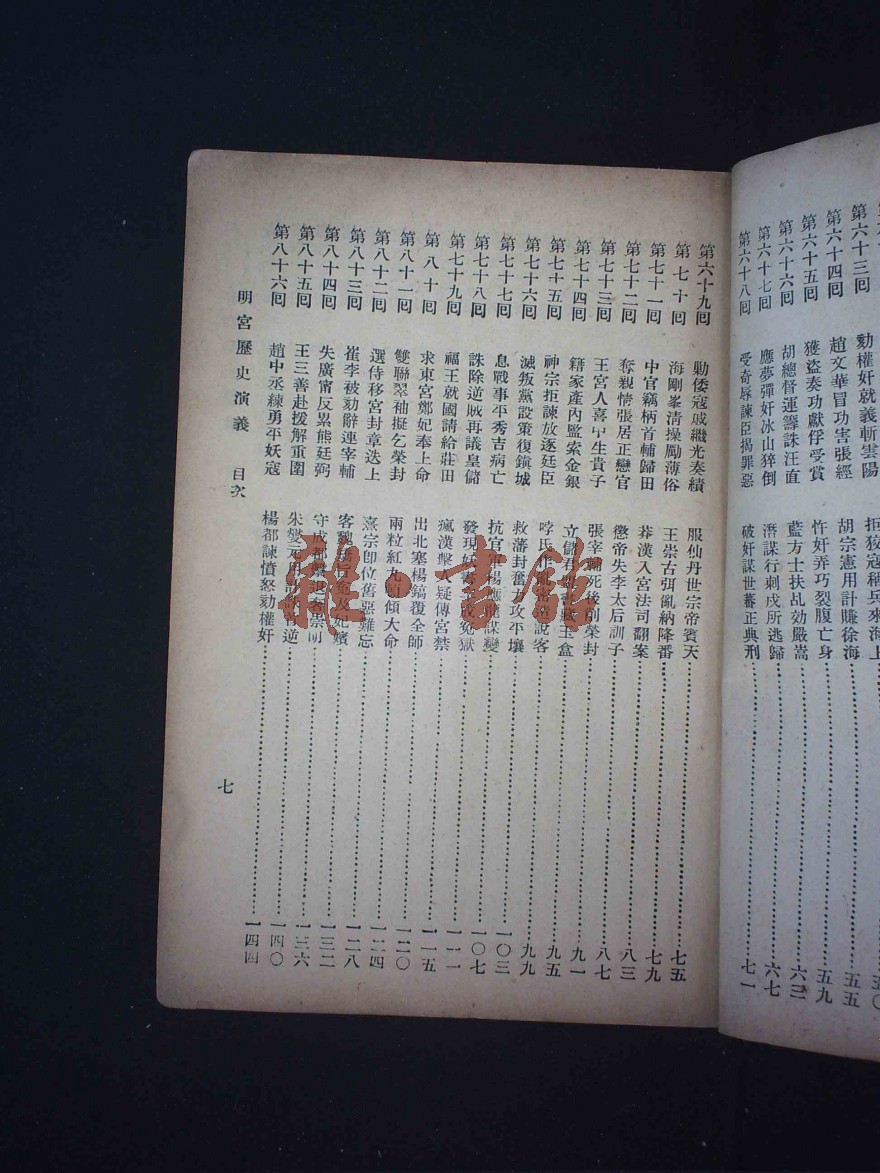 第六十三回 劾權奸就義斬雲陽 拒狡寇稱兵來海上 五〇
第六十四回 趙文華冒功害張經 胡宗憲用計賺徐海 五五
第六十五回 獲盜奏功獻俘受賞 忤奸弄巧裂腹亡身 五九
第六十六回 胡總督運籌誅汪直 藍方士扶乩劾嚴嵩 六三
第六十七回 應夢彈奸冰山猝倒 潛謀行刺戍所逃歸 六七
第六十八回 受奇辱諫臣揭罪惡 破奸謀世蕃正典刑 七一
第六十九回 勦倭寇戚繼光奏績 服仙丹世宗帝賓天 七五
第七十回 海剛峯淸操勵薄俗 王崇古弭亂納降番 七九
第七十一回 中官竊柄首輔歸田 莽漢入宮法司翻案 八三
第七十二回 奪親情張居正戀官 懲帝失李太后訓子 八七
第七十三回 王宮人喜中生貴子 張宰輔死後削榮封 九一
第七十四回 籍家產內監索金銀 立儲君 玉盒 九五
第七十五回 神宗拒諫放逐廷臣 哱氏 說客 九九
第七十六回 滅叛黨設策復鎭城 救藩封奮 攻平壤 一〇三
第七十七回 息戰事平秀吉病亡 抗官軍楊應龍謀變 一〇七
第七十八回 誅除逆賊再議皇儲 發現妖書 成冤獄 一一一
第七十九回 福王就國請給莊田 瘋漢擊 疑傳宮禁 一一五
第八十回 求東宮鄭妃奉上命 出北塞楊鎬覆全師 一二〇
第八十一回 雙聯翠袖擬乞榮封 兩粒紅丸 傾大命 一二四
第八十二回 選侍移宮封章迭上 熹宗卽位舊惡難忘 一二八
第八十三回 崔李被劾辭連宰輔 客魏 冤及妃嬪 一三二
第八十四回 失廣甯反累熊廷弼 守成都擊退奢崇明 一三六
第八十五回 王三善赴援解重圍 朱燮元用計 首逆 一四〇
第八十六回 趙中丞練勇平妖寇 楊都諫憤怒劾權奸 一四四
明宮歷史演義 目次
七